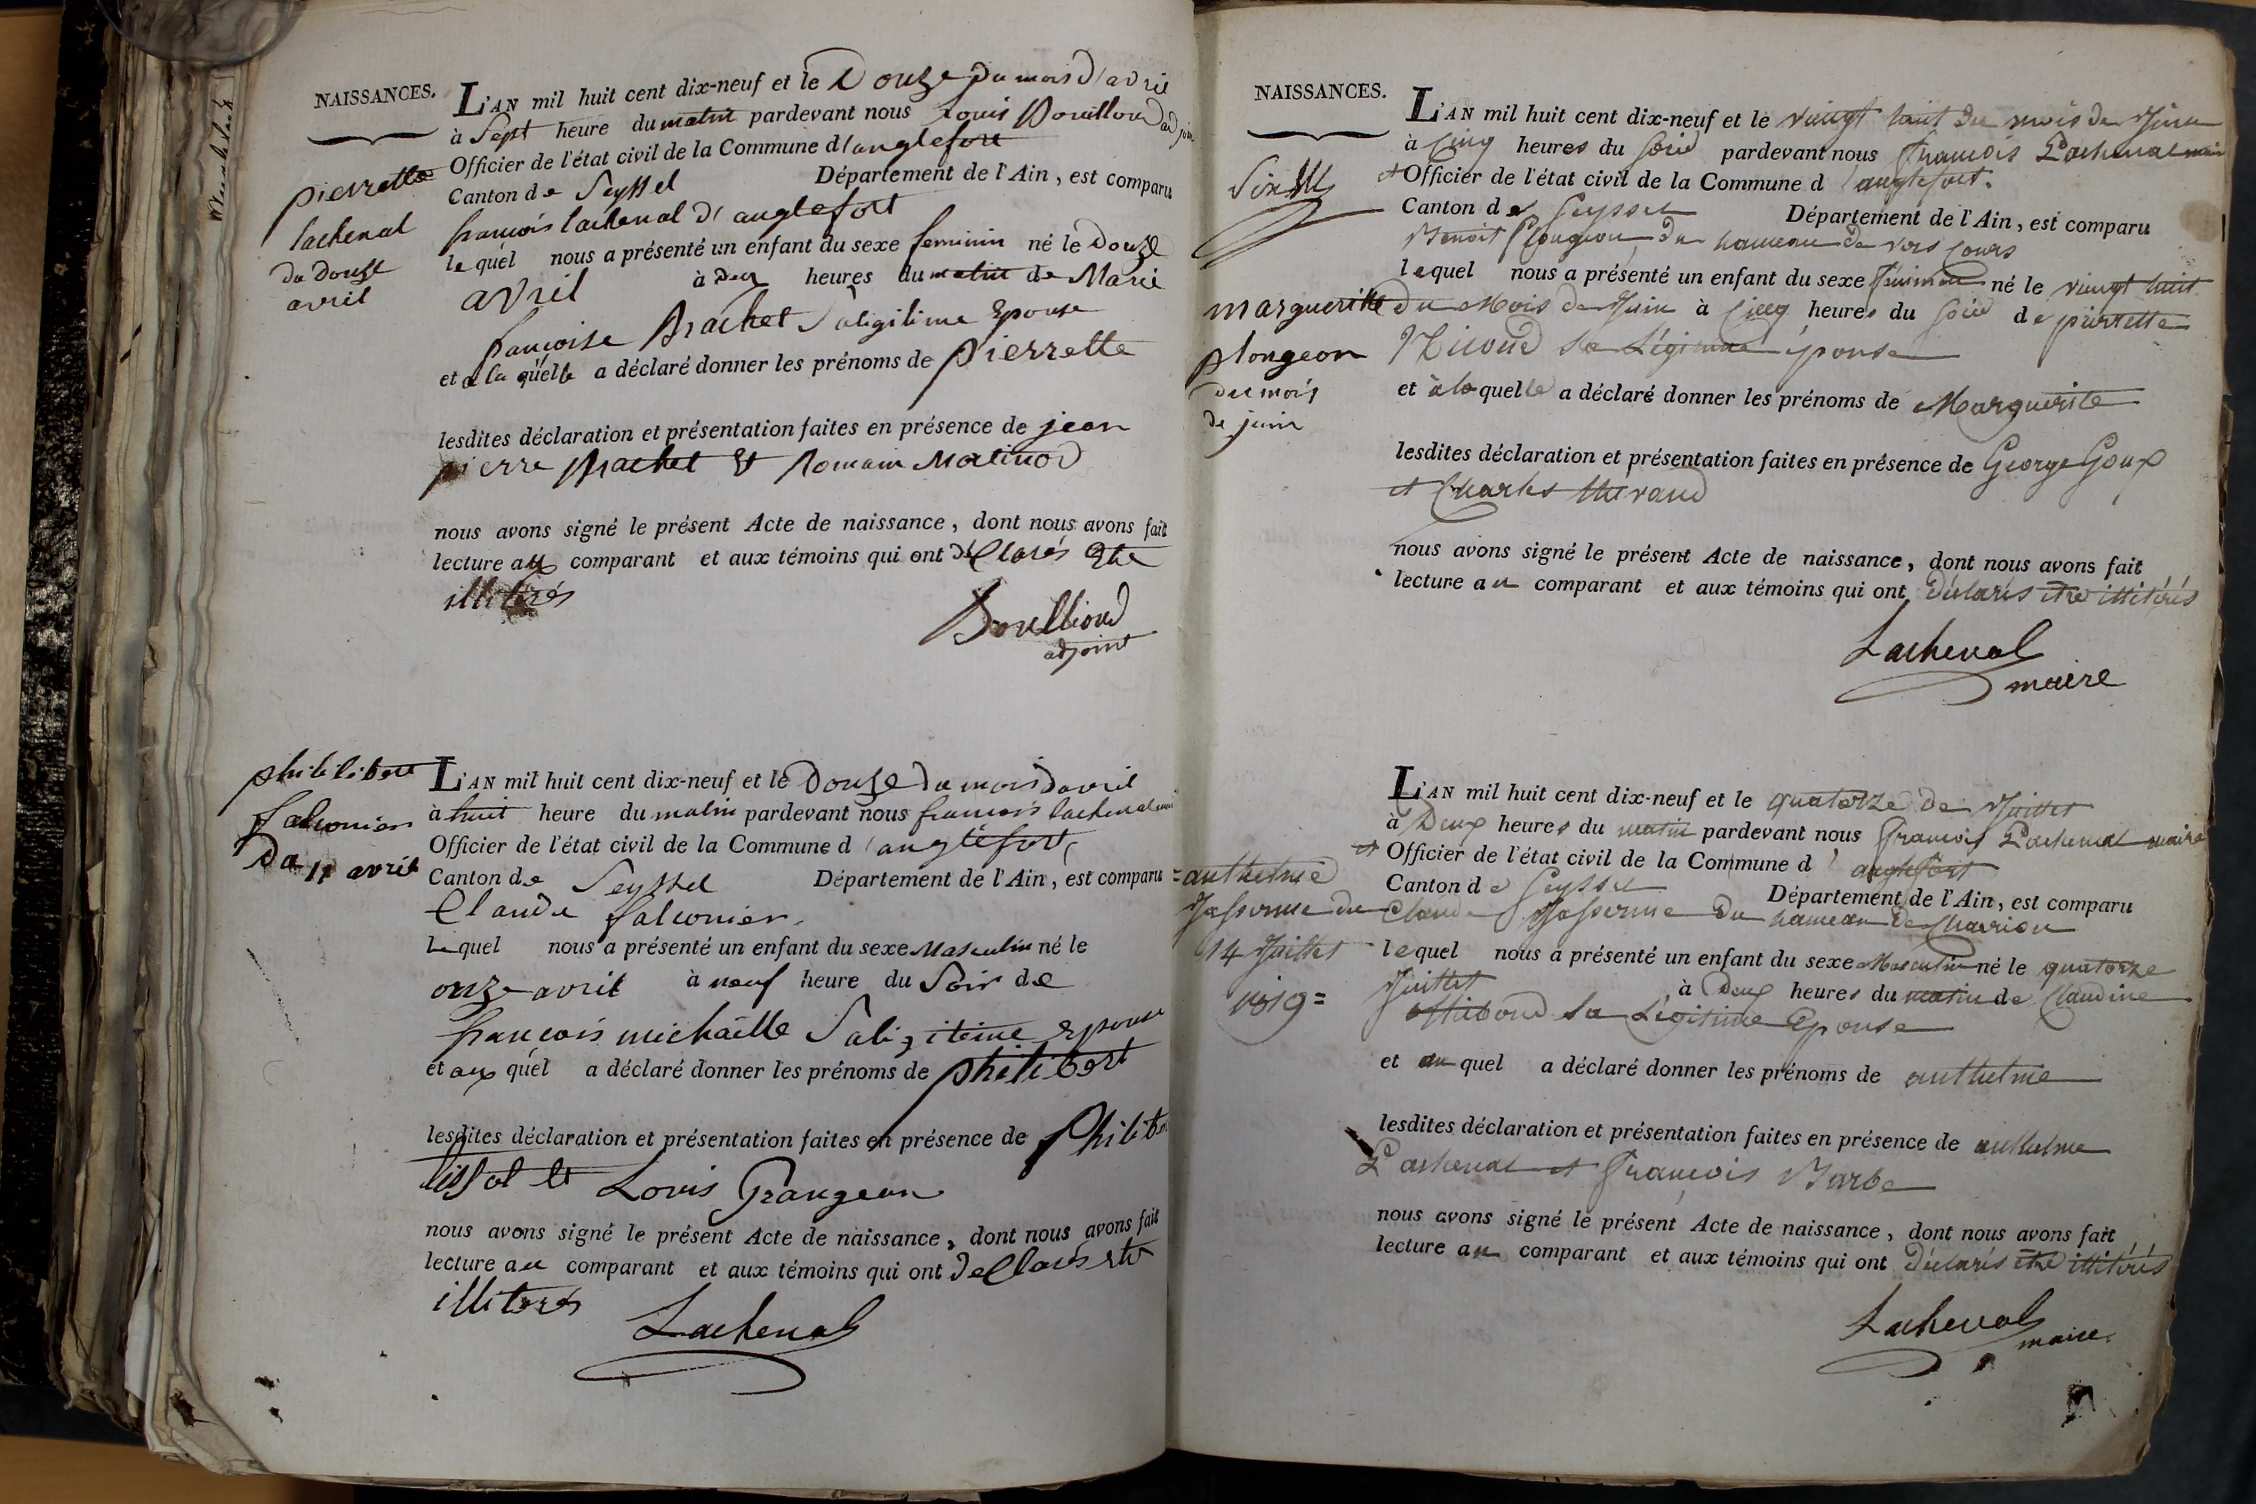 NAISSANCES.
pierrette
lachenal
du douze
avril
L'AN mil huit cent dix-neuf et le Douze du mois d'avril
à Sept heure du matin pardevant nous Louis Bouilloud adjoint
Officier de l'état civil de la Commune d'anglefort
Canton de Seyssel Département de l'Ain, est comparu
françois lachenal d'anglefort
lequel nous a présenté un enfant du sexe feminin né le Douze
avril à heures du matin de Marie
françoise Brachet Saligitime Epouse
et a la quelle a déclaré donner les prénoms de pierrette
lesdites déclaration et présentation faites en présence de jean
pierre Brachet et Romain Matinod
nous avons signé le présent Acte de naissance, dont nous avons fait
lecture aux comparant et aux témoins qui ont déClarés Etre
illiterés
Bouilloud
adjoint
philibert
falconier
Du 11 avril
L'AN mil huit cent dix-neuf et le Douze du mois d'avril
à huit heure du matin pardevant nous françois lachenal
Officier de l'état civil de la Commune d'anglefort
Canton de Seyssel Département de l'Ain, est comparu
Claude falconier
lequel nous a présenté un enfant du sexe Masculin né le
onze avril à neuf heure du Soir de
françois michaille Saligitime Epouse
et aux quel a déclaré donner les prénoms de philibert
lesdites déclaration et présentation faites en présence de Philibert
et Louis Grangeon
nous avons signé le présent Acte de naissance, dont nous avons fait
lecture au comparant et aux témoins qui ont deClarés etre
illiterés
Lachenal
NAISSANCES.
Six
margueritte
plongeon
du mois
de juin
L'AN mil huit cent dix-neuf et le vingt huit du mois de Juin
à Cinq heures du Soir pardevant nous François Lachenal maire
et Officier de l'état civil de la Commune d'anglefort.
Canton de Seyssel Département de l'Ain, est comparu
Benoit Plongeon du hameau de vers Cours
lequel nous a présenté un enfant du sexe feminin né le vingt huit
du Mois de Juin à Cinq heures du Soir de pierrette
sa Légitime épouse
et à la quelle a déclaré donner les prénoms de Marguerite
lesdites déclaration et présentation faites en présence de George Goux
et Charles
nous avons signé le présent Acte de naissance, dont nous avons fait
lecture au comparant et aux témoins qui ont déclarés être illitérés
Lachenal
maire
=anthelme
Jasserme du
14 Juillet
1819=
L'AN mil huit cent dix-neuf et le quatorze de Juillet
à Deux heures du matin pardevant nous François Lachenal maire
et Officier de l'état civil de la Commune d'anglefort
Canton de Seyssel Département de l'Ain, est comparu
Claude Jasserme du hameau de
lequel nous a présenté un enfant du sexe Masculin né le quatorze
Juillet à Deux heures du matin de Claudine
sa Légitime Epouse
et au quel a déclaré donner les prénoms de anthelme
lesdites déclaration et présentation faites en présence de anthelme
Lachenal et François Barbe
nous avons signé le présent Acte de naissance, dont nous avons fait
lecture au comparant et aux témoins qui ont déclarés être illitérés
Lachenal
maire.